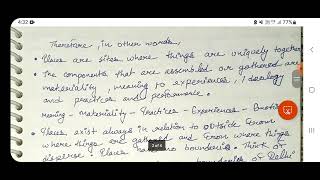 4:32
77%
Therefore, in other words,
• Places are sites where things are uniquely together
• The components that are assembled or gathered are
materiality, meaning to experiences, ideology
and practices and performance.
Meaning - materiality - Practices - Experiences -
• Places exist always in relation to outside from
where things are gathered and from where things
disperse. Places have no boundaries. Think of
boundaries of Delhi